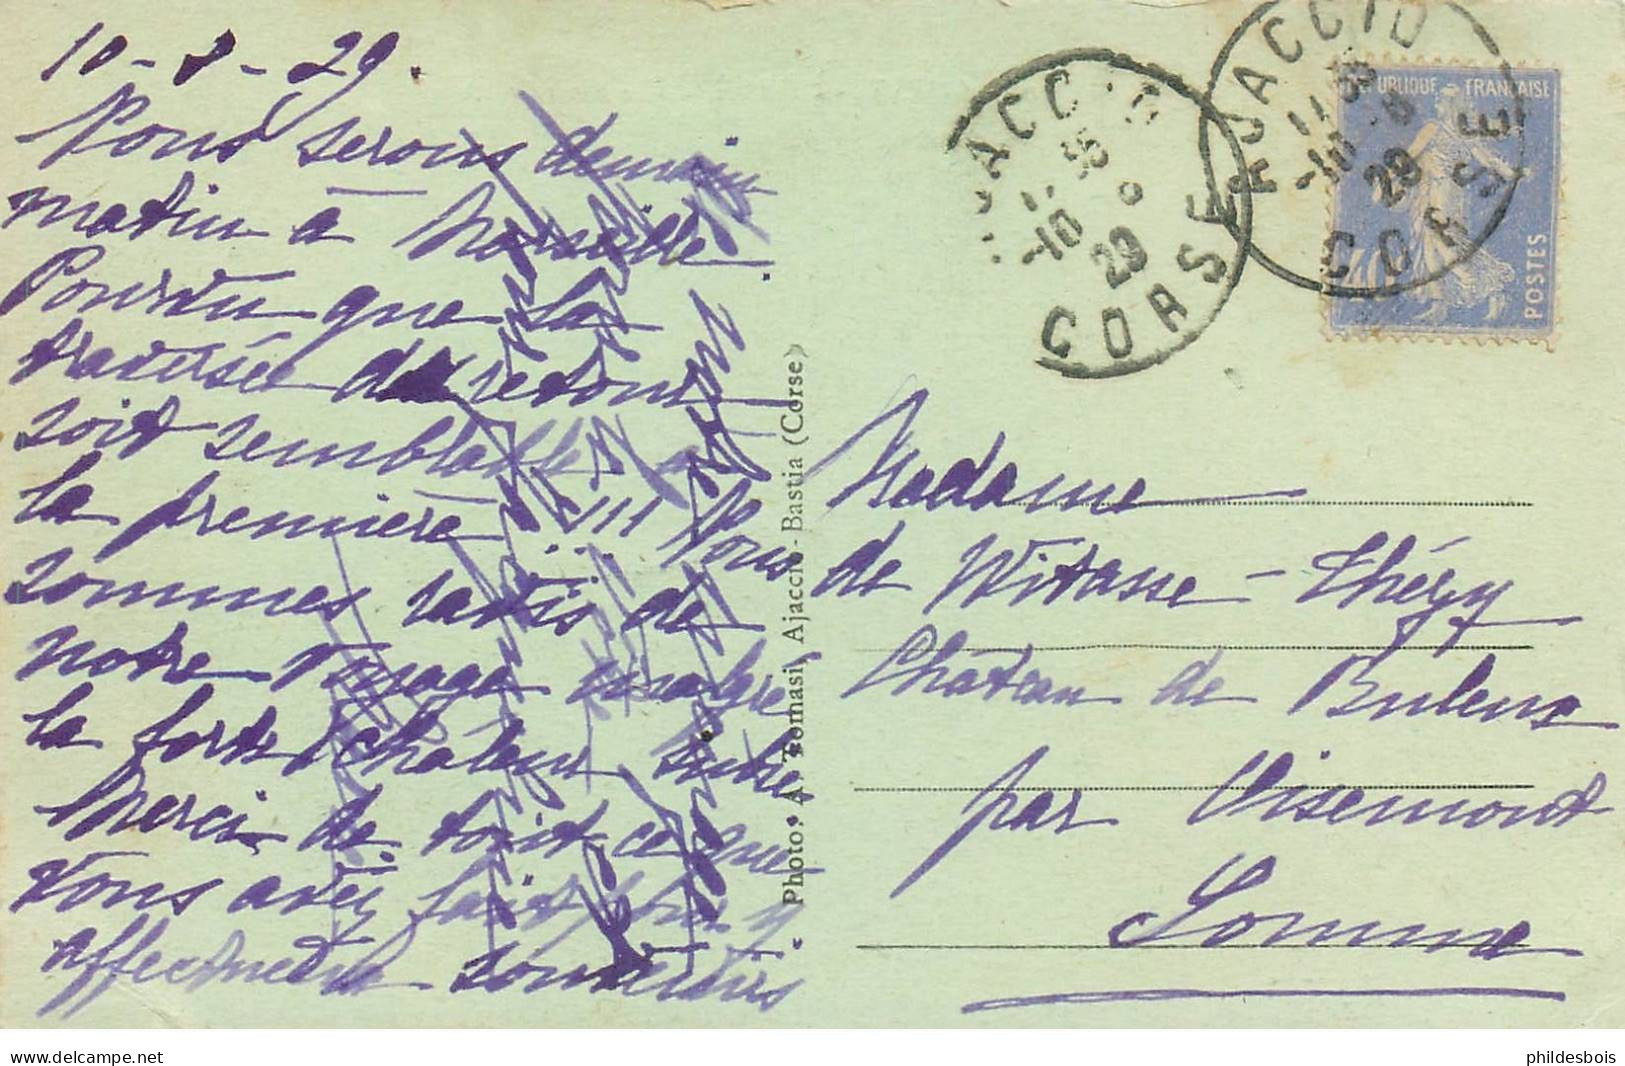 10-8-29.
Nous serons demain
matin à Marseille.
Pourvu que la
traversée de retour
soit semblable à
la première !!! Nous
sommes ravis de
notre voyage malgré
la forte chaleur subie
Merci de tout ce que
vous avez fait pour
affectueux souvenirs
Photo: A. Tomasi, Ajaccio-Bastia (Corse)
AJACCIO
11 35
-10 8
29
CORSE
AJACCIO
11 35
-10 8
29
CORSE
REPUBLIQUE - FRANÇAISE
POSTES
40
Madame
de Witasse-Thézy
Château de Buleux
par Oisemont
Somme
www.delcampe.net
phildesbois